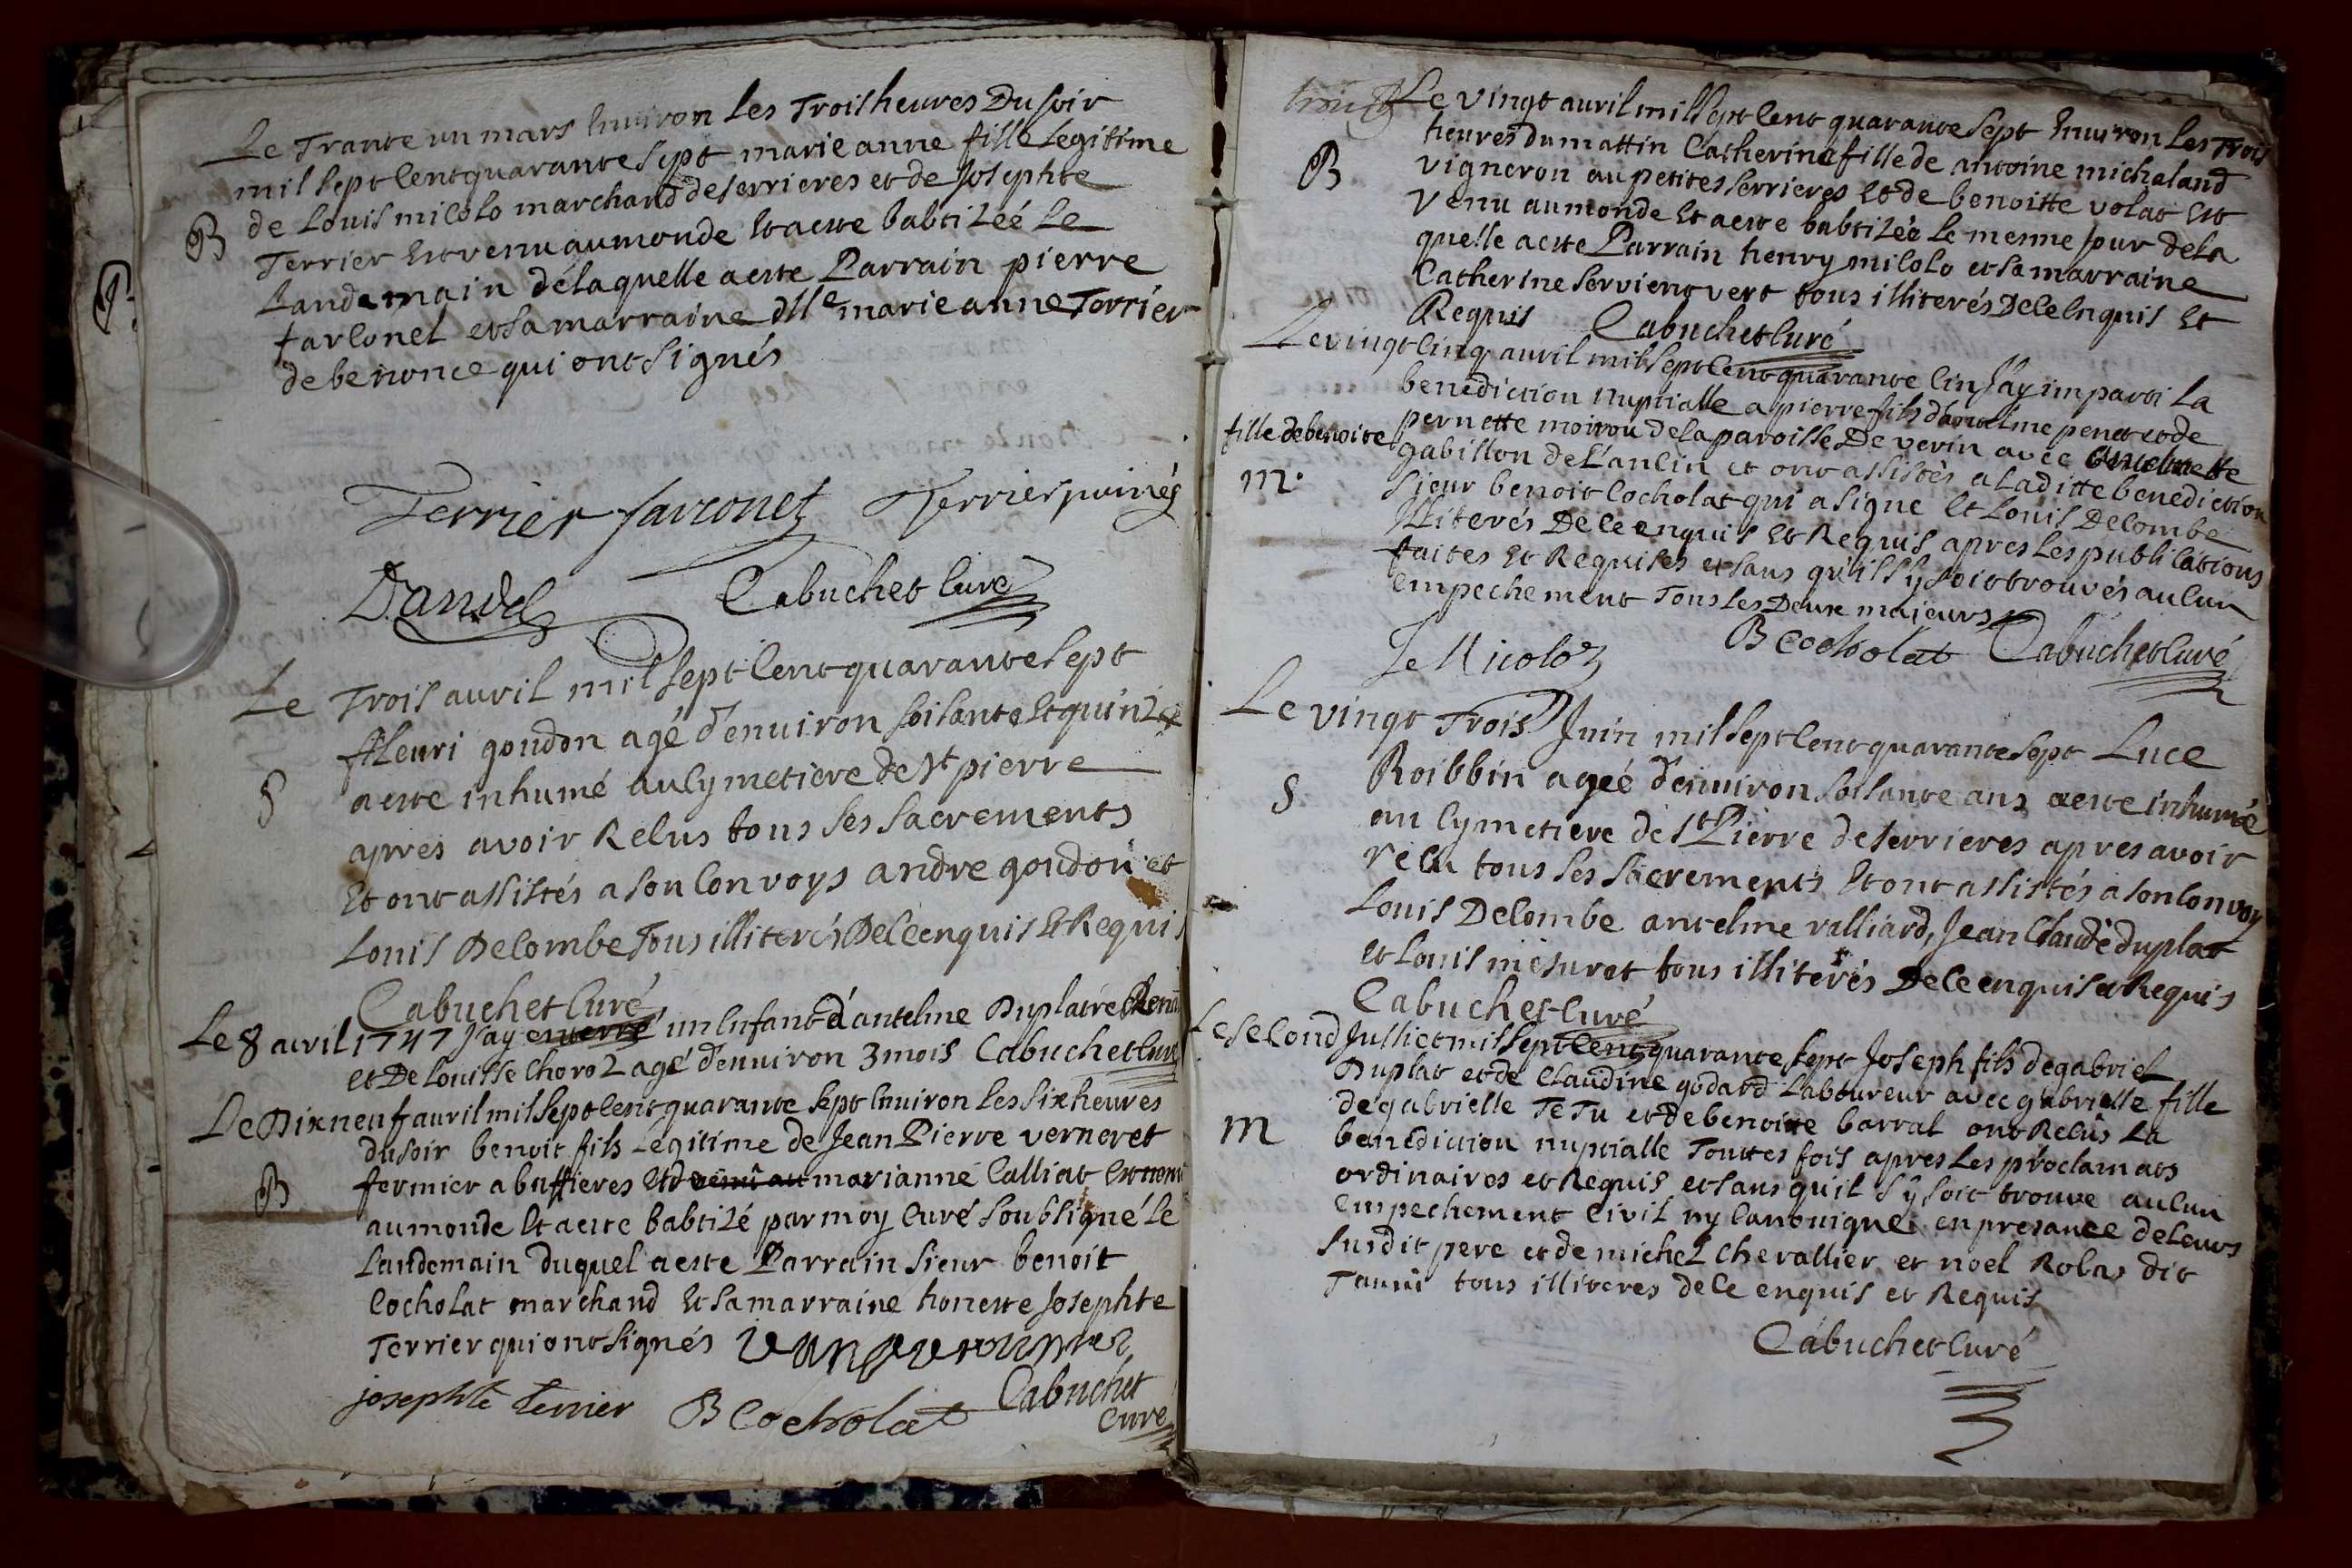 Le Trante un mars Environ Les Trois heures Du soir
mil sept Cent quarante Sept marie anne fille Legitime
de Louis micolo marchand deserrieres et de Josephte
B
Terrier Est venu au monde Et a este babtizéé Le
Landemain délaquelle a este Parrain pierre
farconet et sa marraine dlle marie anne Terrier
de benonce qui ont signés
Terrier farconet Terrier puinés
Cabuchet Curé
Le Trois avril mil sept Cent quarante sept
fleuri goudon agé d'environ soisante Et quinze
S
a este inhumé au Cymetiere de St pierre
apres avoir Recus tous ses sacrements
Et ont assistés a son Convoys andre goudon et
Louis Decombe Tous illiterés De ce enquis Et Requis
Cabuchet Curé
Le 8 avril 1747 J'ay enterré un Enfant d'antelme Duplatre
et De Louisse Choroz agé d'environ 3 mois Cabuchet Curé
Le Dixneuf avril mil sept Cent quarante sept Environ Les six heures
du soir benoit fils Legitime de Jean Pierre verneret
B
fermier a buffieres Et de marianne Calliat Est venu
au monde Et a este babtizé par moy Curé soubsigné Le
Landemain Duquel a este Parrain sieur benoit
Cocholat marchand Et sa marraine honeste Josephte
Terrier qui ont signés
josephte terrier B Cocholat Cabuchet
Curé
Le vingt avril mil sept Cent quarante sept Environ Les Trois
heures du mattin Catherine fille de antoine michaland
B
vigneron au petites serrieres Et de benoitte volat Est
venu au monde Et a este babtizéé Le mesme jour de la
quelle a este Parrain henry micolo et sa marraine
Catherine servient vert tous illiterés De ce Enquis Et
Requis Cabuchet Curé
Le vingt Cinq avril mil sept Cent quarante Cin J'ay imparti La
benediction nuptialle a pierre fils d'antelme penet et de
pernette moirou de la paroisse De verin avec
fille de benoite
gabillon de L'ancin et ont assistés a La ditte benediction
m.
sieur benoit Cocholat qui a signe Et Louis Decombe
illiterés De ce enquis Et Requis apres Les publications
faites Et Requises et sans qu'il s'y soit trouvés aucun
Empechement Tous Les Deux majeurs
Je Micoloz B Cocholat Cabuchet Curé
Le vingt Trois Juin mil sept Cent quarante sept Luce
Roibbin agéé d'environ soisante ans a este inhumé
S
au Cymetiere de St Pierre de serrieres apres avoir
recu tous ses sacrements Et ont assistés a son Convoy
Louis Decombe antelme valliard, Jean Claude duplat
et Louis mesuret tous illiterés De ce enquis et Requis
Cabuchet Curé
Le second Julliet mil sept Cent quarante sept Joseph fils de gabriel
Duplat et de Claudine godard Laboureur avec gabrielle fille
de gabrielle TeTu et de benoite barral ont Recus La
m
benediction nuptialle Touttes fois apres Les proclamats
ordinaires et Requis et sans qu'il s'y soit trouve aucun
Empechement Civil ny Canonique en presance de Leurs
susdit pere et de michel Chevallier et noel Robas dit
tous illiteres de ce enquis et Requis
Cabuchet Curé